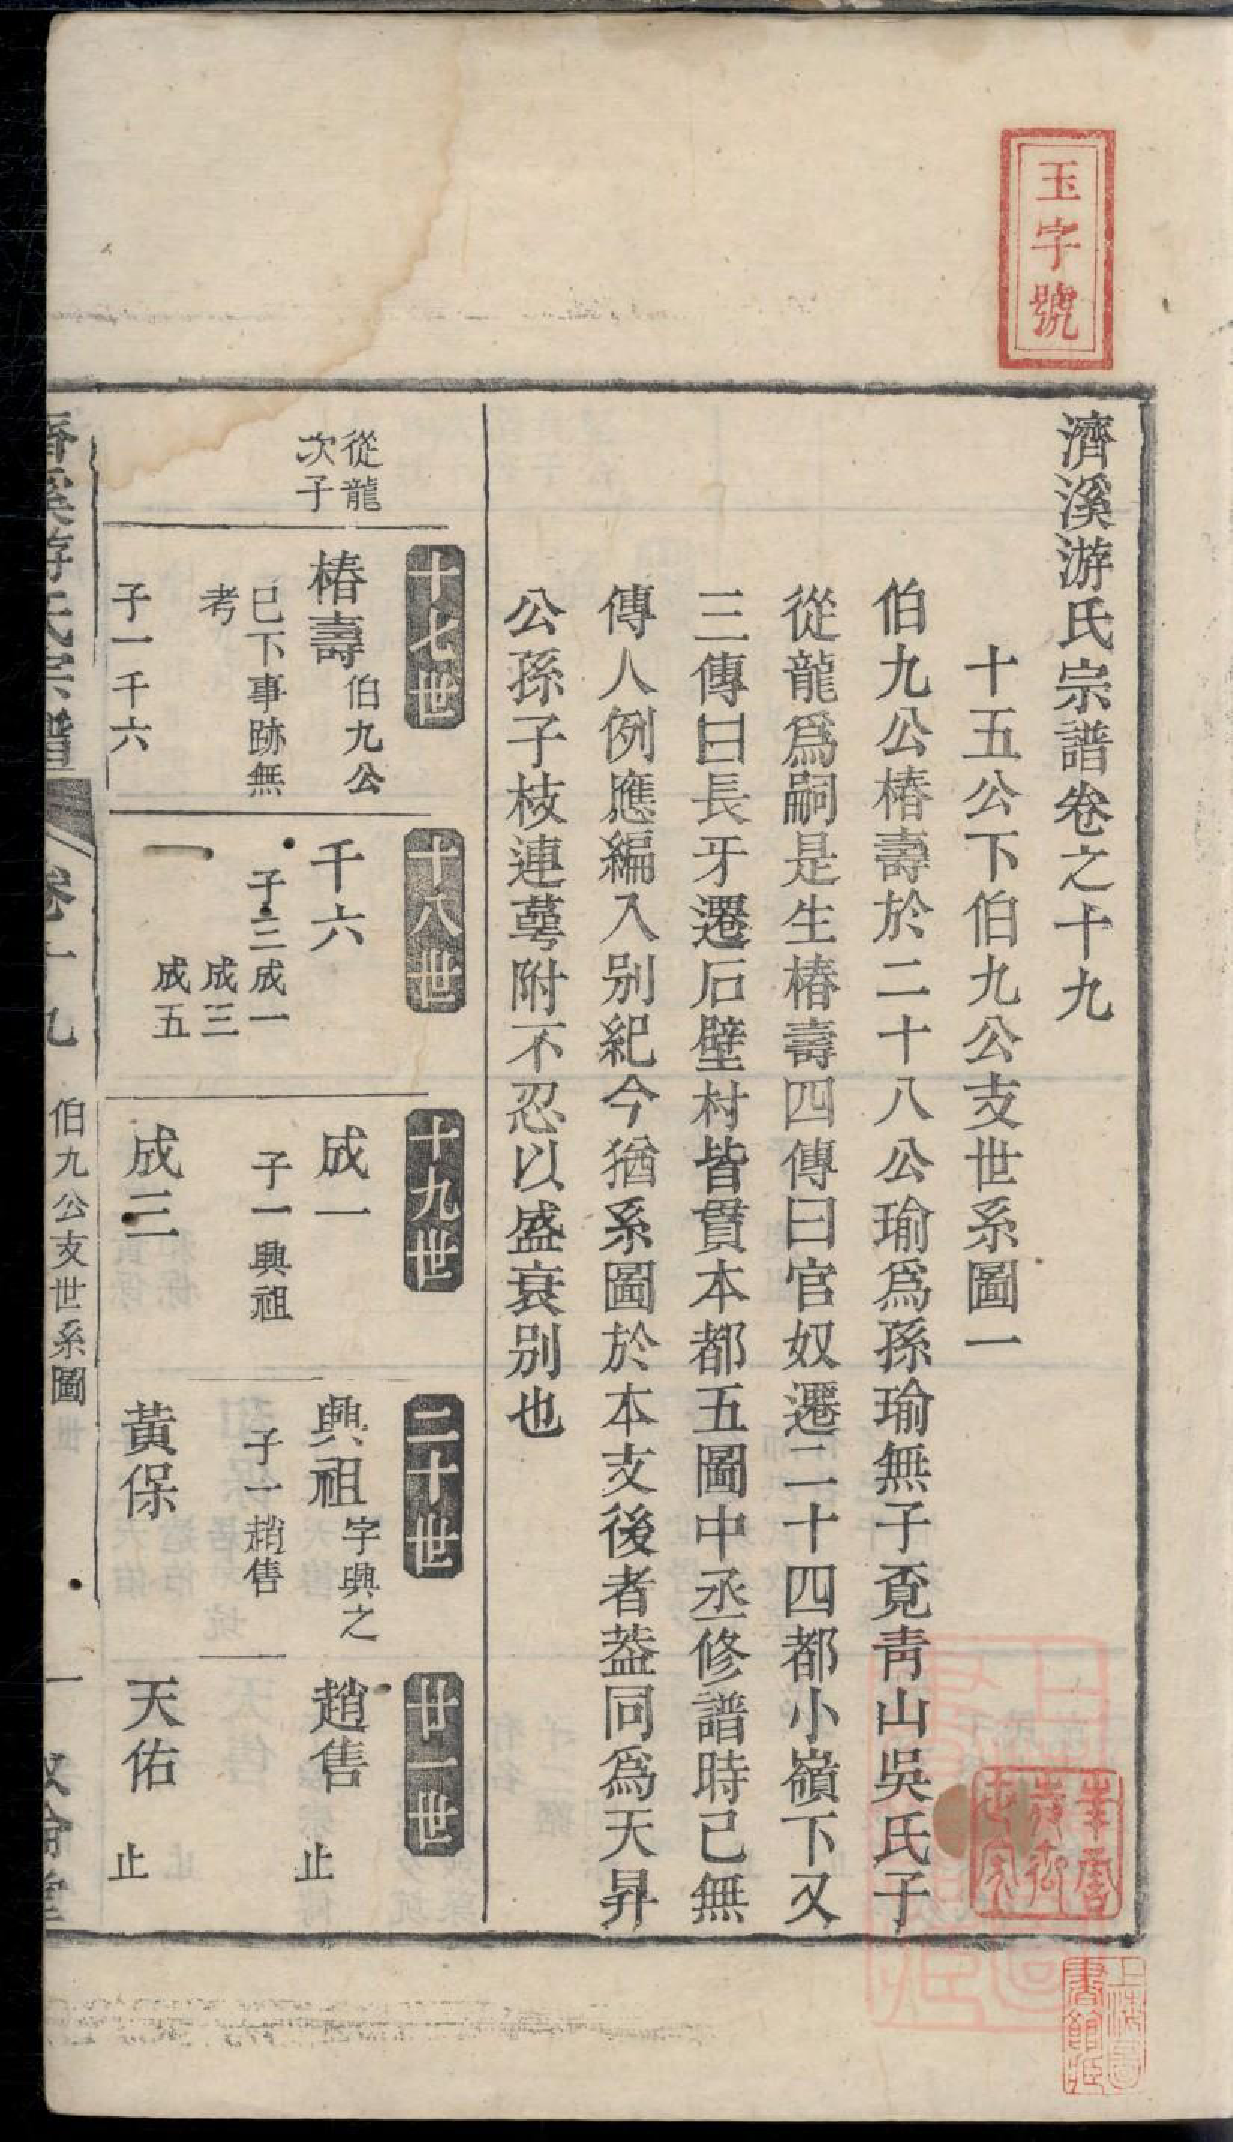 玉字號
濟溪游氏宗譜卷之十九
十五公下伯九公支世系圖一
伯九公椿壽於二十八公瑜爲孫瑜無子覓靑山吳氏子
從龍爲嗣是生椿壽四傳曰官奴遷二十四都小嶺下又
三傳曰長牙遷石壁村皆貫本都五圖中丞修譜時已無
傳人例應編入别紀今猶系圖於本支後者葢同爲天昇
公孫子枝連萼附不忍以盛衰别也
十七世
十八世
十九世
二十世
廿一世
從龍
次子
椿壽
伯九公
已下事跡無
考
子一千六
千六
子三成一
成三
成五
成一
子一興祖
興祖
字興之
子一趙售
趙售
止
成三
黃保
天佑
止
濟溪游氏宗譜
卷十九
伯九公支世系圖
一
敘倫堂
上海圖
書館藏